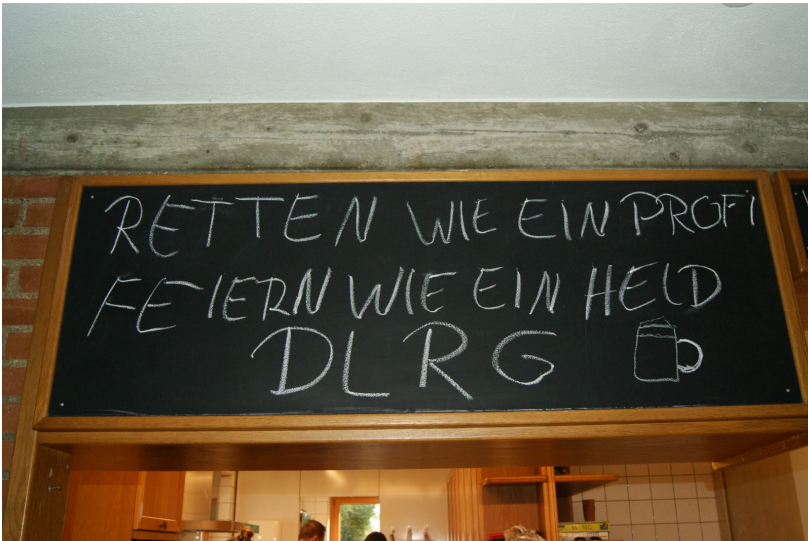 RETTEN WIE EIN PROFI
FEIERN WIE EIN HELD
DLRG